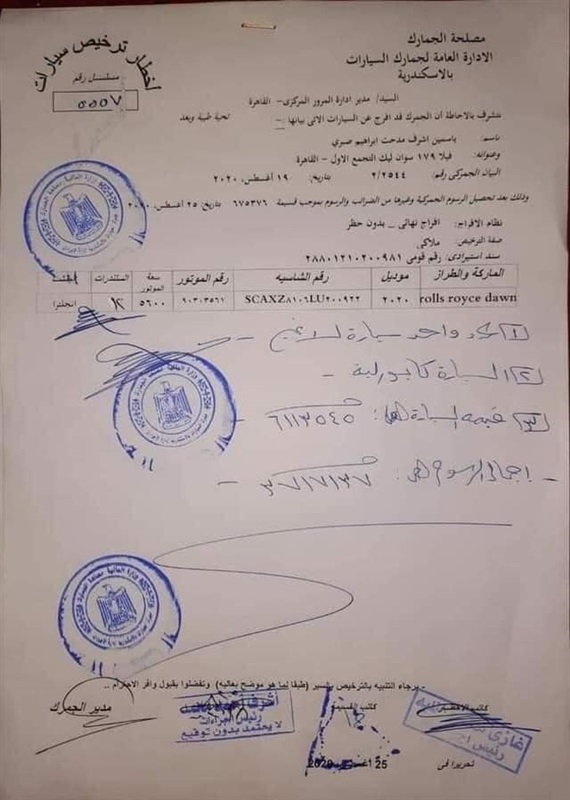 مصلحة الجمارك
الادارة العامة لجمارك السيارات
بالاسكندرية
أخطار ترخيص سيارات
مسلسل رقم
٥٥٥٧
السيد/ مدير ادارة المرور المركزى- القاهرة
تحية طيبة وبعد
نتشرف بالاحاطة أن الجمرك قد افرج عن السيارات الاتى بيانها :-
باسم: ياسمين اشرف مدحت ابراهيم صبري
وعنوانه: فيلا ١٧٩ سوان ليك التجمع الاول - القاهرة
البيان الجمركى رقم: ٢/٢٥٤٤ بتاريخ: ١٩ أغسطس، ٢٠٢٠
وذلك بعد تحصيل الرسوم الجمركية وغيرها من الضرائب والرسوم بموجب قسيمة ٦٧٥٣٧٦ بتاريخ ٢٥ أغسطس، ٢٠٢٠
نظام الافراج: افراج نهائى _ بدون حظر
صفة الترخيص: ملاكي
سند استيرادى: رقم قومى ٢٨٨٠١٢١٠٢٠٠٩٨١
الماركة والطراز موديل رقم الشاسيه رقم الموتور سعة الموتور السلندرات
rolls royce dawn ٢٠٢٠ SCAXZ٨١٠٦LU٢٠٠٩٢٢ ٩٠٣٠٣٥٦١ ٥٦٠٠ ١٢ انجلترا
١) عدد واحد سيارة لا غير -
٢) السيارة كابورلية -
٣) قيمة السيارة : ٦١١٣٥٤٥ -
- اجمالى الرسوم : ٣٧١٧١٣٧ -
- برجاء التنبيه بالترخيص بالسير (طبقا لما هو موضح بعاليه) وتفضلوا بقبول وافر الاحترام ..
كاتب الاخطار كاتب القسيمة مدير الجمرك
رئيس اجراءات
لا يعتمد بدون توقيع
تحريرا فى 25 أغسطس، 2020